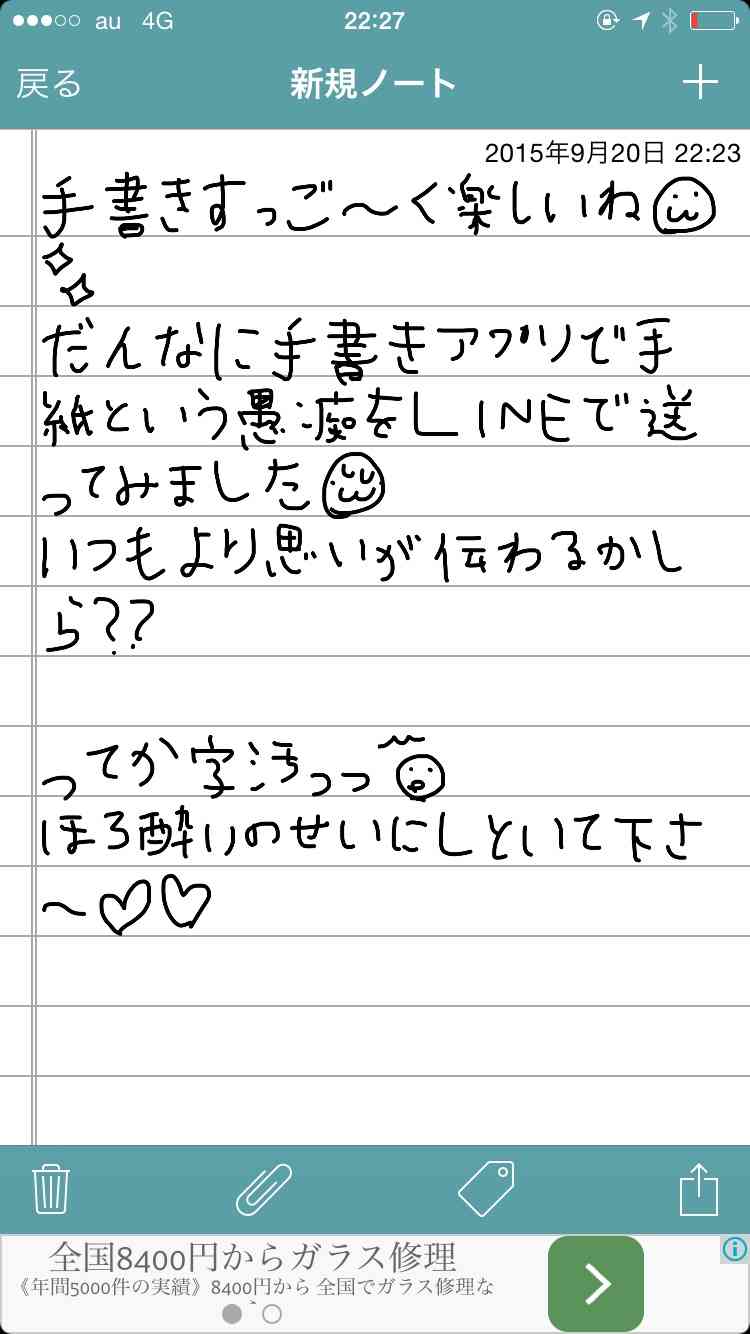 au 4G 22:27
戻る 新規ノート
2015年9月20日 22:23
手書きすっご〜く楽しいね
だんなに手書きアプリで手
紙という愚痴をLINEで送
ってみました
いつもより思いが伝わるかし
ら??
ってか字汚っっ
ほろ酔いのせいにしといて下さ
〜♡♡
全国8400円からガラス修理
《年間5000件の実績》8400円から 全国でガラス修理な